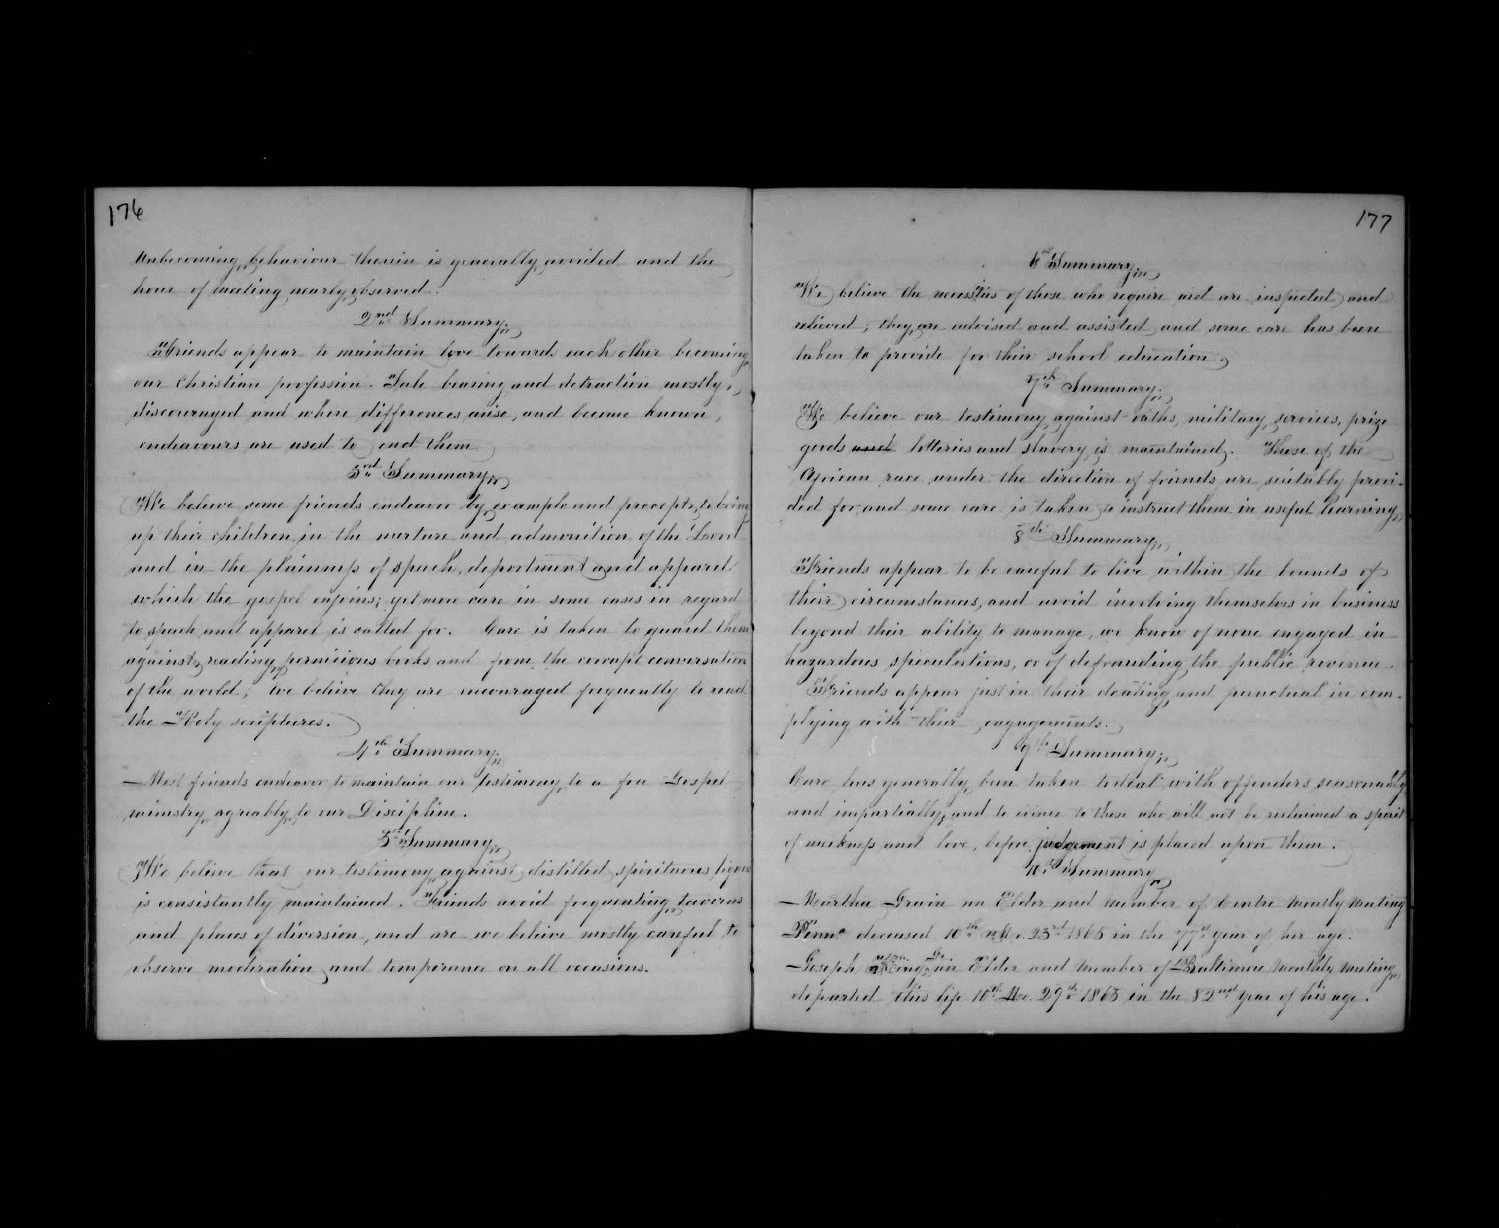 176
Unbecoming behaviour therein is generally avoided and the
hour of meeting nearly observed.
2nd Summary
Friends appear to maintain love towards each other becoming
our Christian profession. Tale bearing and detraction mostly
discouraged and where differences arise, and become known,
endeavours are used to end them
3rd Summary
We believe some friends endeavor by example and precept, to bring
up their children, in the nurture and admonition of the Lord
and in the plainness of speech, deportment and apparel
which the gospel enjoins; yet more care in some cases in regard
to speech and apparel is called for. Care is taken to guard them
against reading pernicious books and from the corrupt conversation
of the world; we believe they are encouraged frequently to read
the Holy scriptures.
4th Summary
Most friends endeavor to maintain our testimony to a free Gospel
ministry agreably to our Discipline.
5th Summary
We believe that our testimony against distilled spirituous liquors
is consistantly maintained. Friends avoid frequenting taverns
and places of diversion, and are we believe mostly careful to
observe moderation and temperance on all occasions.
177
6th Summary
We believe the necessities of those who require aid are inspected and
relieved; they are advised and assisted and some care has been
taken to provide for their school education
7th Summary
We believe our testimony against oaths, military services, prize
goods lotteries and slavery is maintained. Those of the
African race under the direction of friends are suitably provi-
ded for and some care is taken to instruct them in useful learning
8th Summary
Friends appear to be careful to live within the bounds of
their circumstances, and avoid involving themselves in business
beyond their ability to manage, we know of none engaged in
hazardous speculations, or of defrauding the public revenue
Friends appear just in their dealing and punctual in com-
plying with their engagements.
9th Summary
Care has generally been taken to deal with offenders seasonably
and impartially, and to evince to those who will not be reclaimed a spirit
of meekness and love, before judgement is placed upon them.
10th Summary
Martha an Elder and member of Centre Montly Meeting
Penna deceased 10th Mo. 23rd 1865 in the 77th year of her age.
Joseph King an Elder and member of Baltimore Monthly Meeting
departed this life 10th Mo. 29th 1865 in the 82nd year of his age.